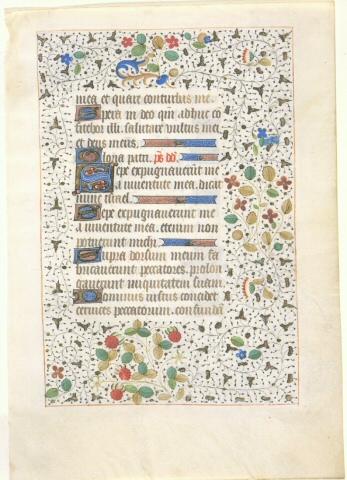 mea et quare conturbas me.
Spera in deo qm adhuc co
fitebor illi. salutare vultus mei
et deus meus.
Gloria patri. ps dd.
Sepe expugnauerunt me
a iuuentute mea. dicat
nunc israel.
Sepe expugnauerunt me
a iuuentute mea. etenim non
potuerunt michi.
Supra dorsum meum fa
bricauerunt peccatores. prolon
gauerunt iniquitatem suam.
Dominus iustus concidet
ceruices peccatorum. confunda